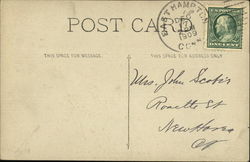 POST CARD
EAST HAMPTON
1909
CONN.
U.S. POSTAGE
ONE CENT
THIS SPACE FOR MESSAGE.
THIS SPACE FOR ADDRESS ONLY.
Mrs. John Scoter
Rosette St
New Haven
Ct